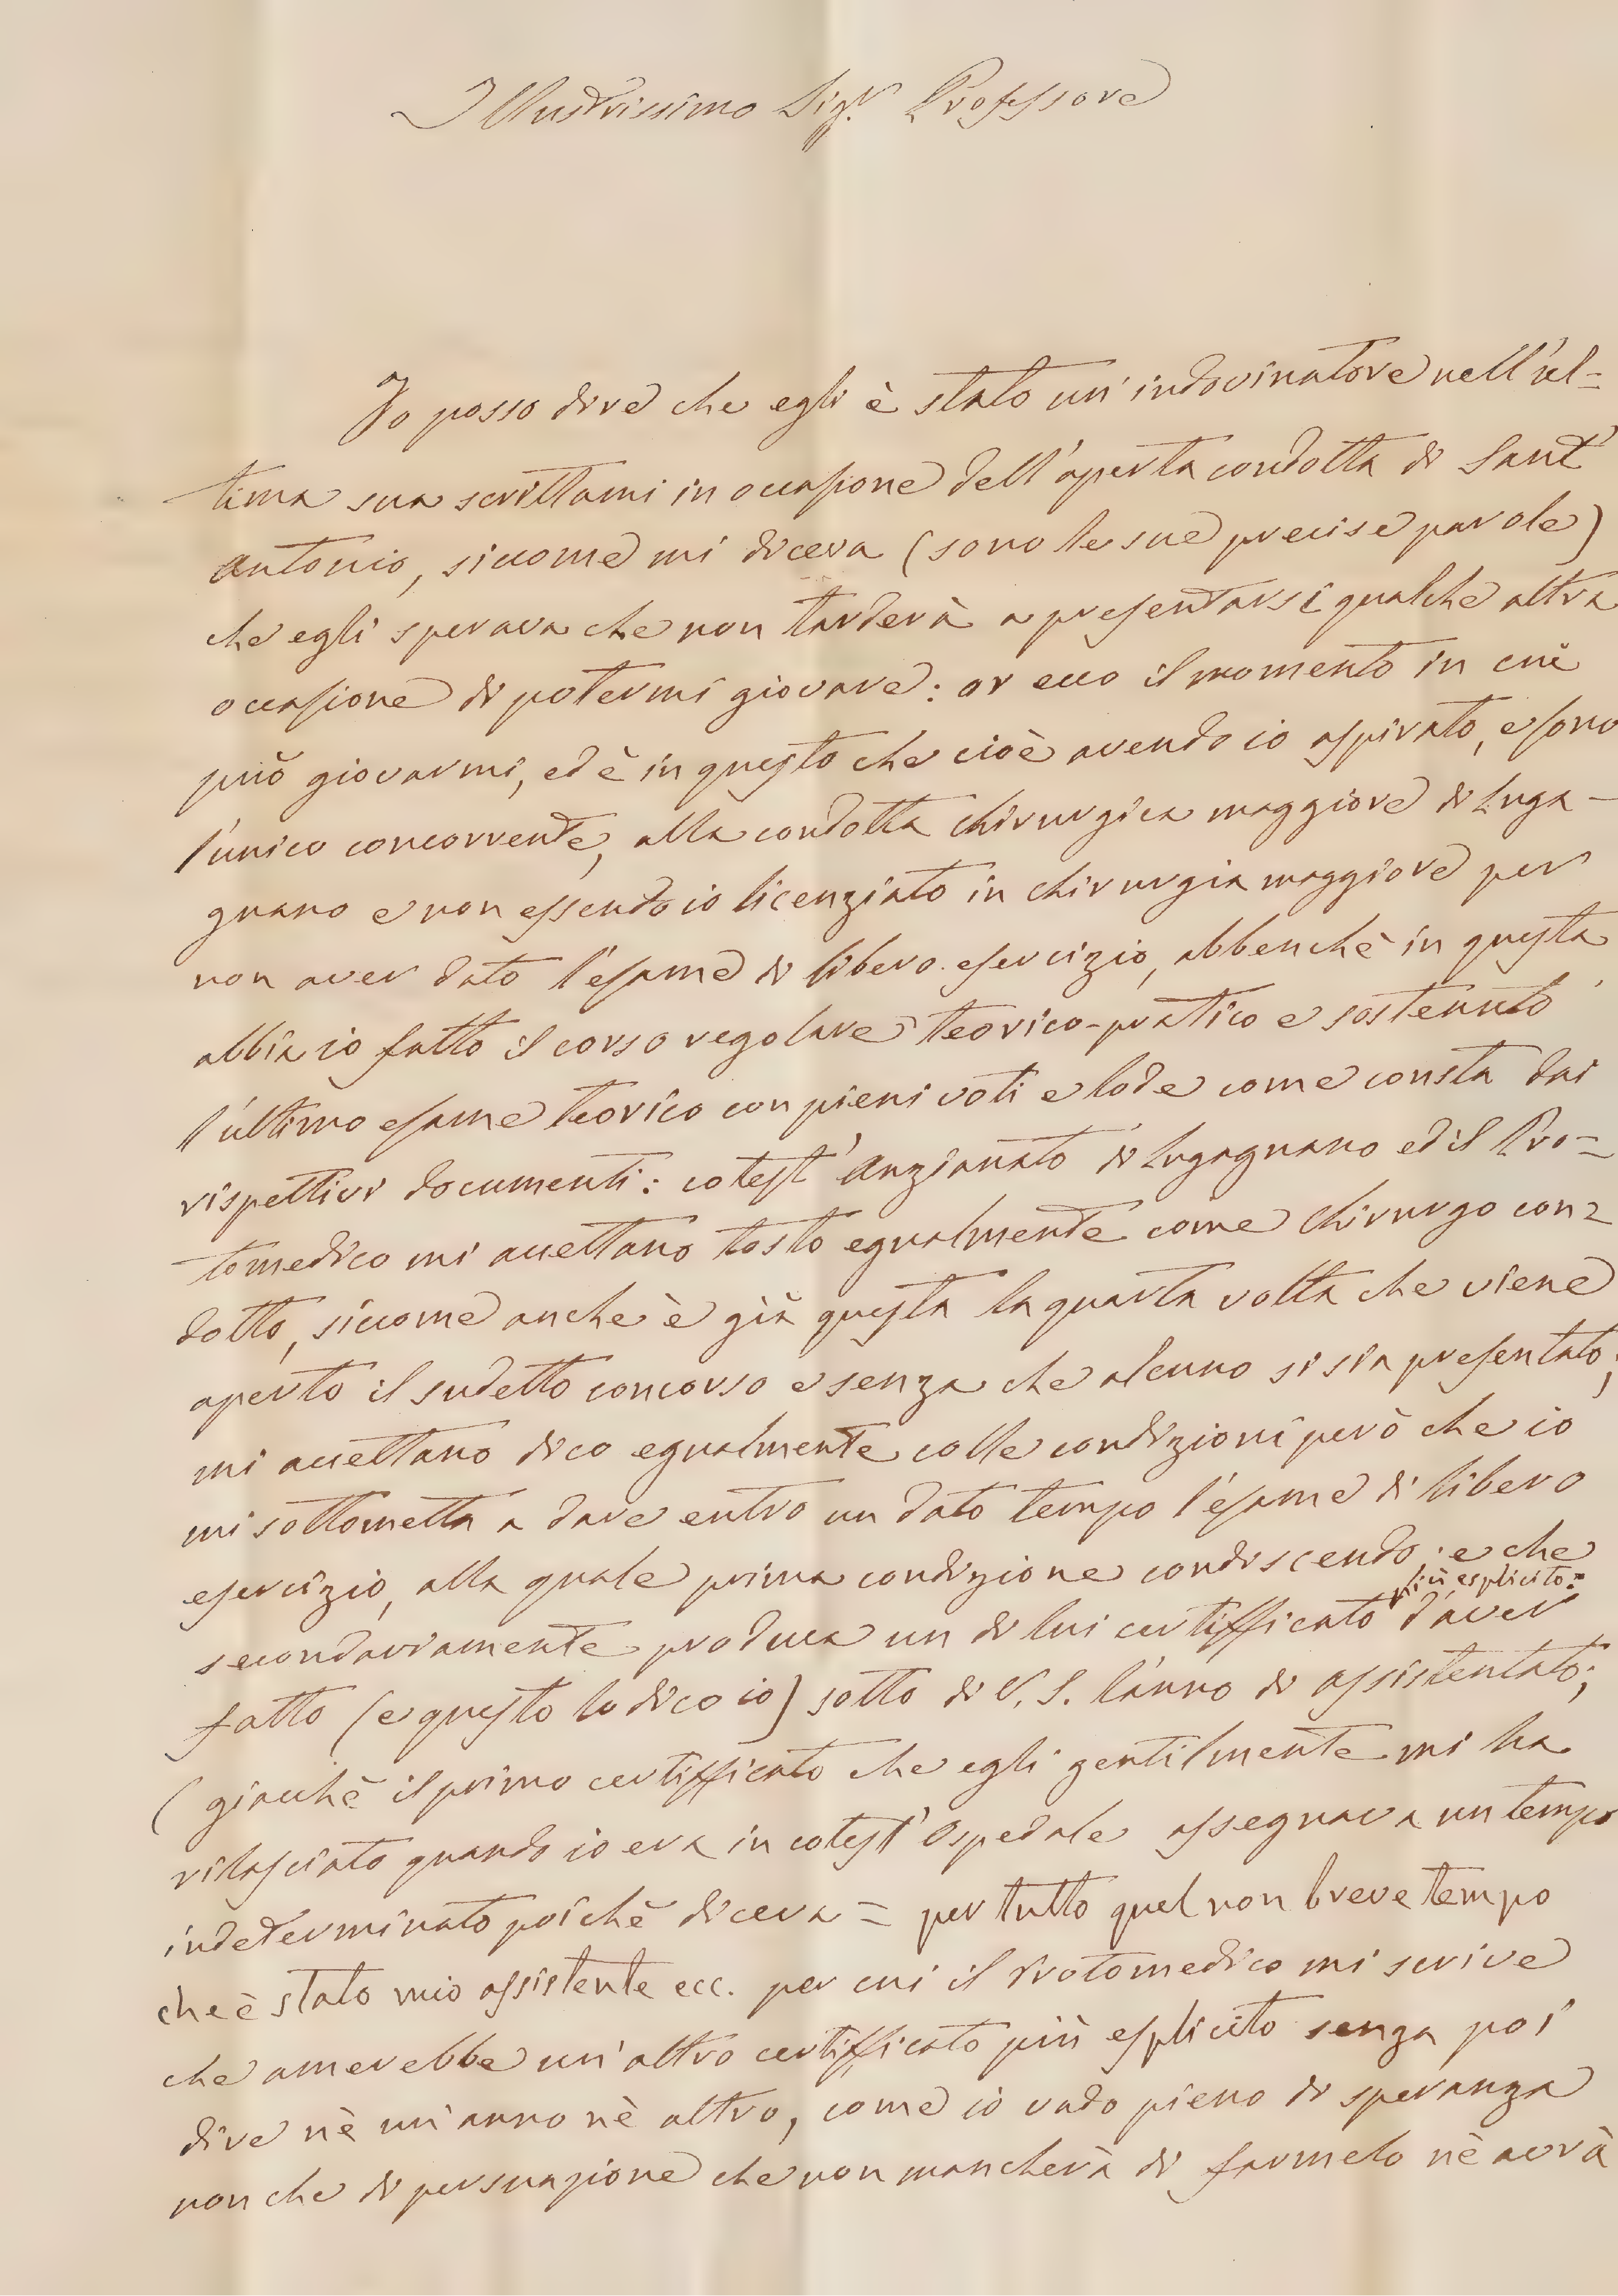 Illustrissimo Sigr. Professore
Io posso dire che egli è stato un'indovinatore nell'ul=
tima sua scrittami in occasione dell'aperta condotta di Sant'
Antonio, siccome mi diceva (sono le sue precise parole)
che egli sperava che non tarderà a presentarsi qualche altra
occasione di potermi giovare: or ecco il momento in cui
può giovarmi, ed è in questo che cioè avendo io aspirato, e sono
l'unico concorrente, alla condotta chirurgica maggiore di Luga-
gnano e non essendo io licenziato in chirurgia maggiore per
non aver dato l'esame di libero esercizio, abbenchè in questa
abbia io fatto il corso regolare teorico-pratico e sostenuto
l'ultimo esame teorico con pieni voti e lode come consta dai
rispettivi documenti: cotest'Anzianato di Lugagnano ed il Pro=
tomedico mi accettano tosto egualmente come chirurgo con=
dotto, siccome anche è già questa la quarta volta che viene
aperto il sudetto concorso e senza che alcuno si sia presentato;
mi accettano dico egualmente colle condizioni però che io
mi sottometta a dare entro un dato tempo l'esame di libero
esercizio, alla quale prima condizione condiscendo; e che
più esplicito:
secondariamente produca un di lui certifficato d'aver
fatto (e questo lo dico io) sotto di V. S. l'anno di assistentato;
(giacchè il primo certifficato che egli gentilmente mi ha
rilasciato quando io era in cotest'Ospedale assegnava un tempo
indeterminato poichè diceva = per tutto quel non breve tempo
che è stato mio assistente ecc. per cui il Protomedico mi scrive
che amerebbe un'altro certifficato più esplicito senza poi
dire nè un'anno nè altro, come io vado pieno di speranza
non che di persuasione che non mancherà di farmelo nè avrà